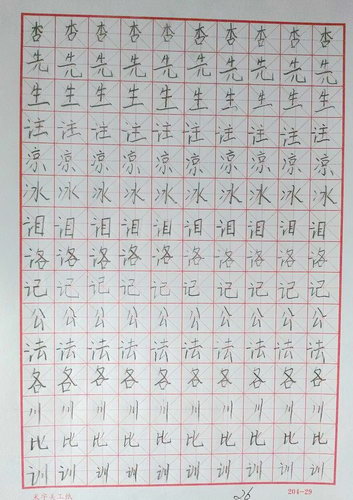 杏杏杏杏杏杏杏杏杏杏
先先先先先先先先先先
生生生生生生生生生生
注注注注注注注注注注
凉凉凉凉凉凉凉凉凉凉
冰冰冰冰冰冰冰冰冰冰
泪泪泪泪泪泪泪泪泪泪
洛洛洛洛洛洛洛洛洛洛
记记记记记记记记记记
公公公公公公公公公公
法法法法法法法法法法
各各各各各各各各各各
川川川川川川川川川川
比比比比比比比比比比
训训训训训训训训训训
26 204-29